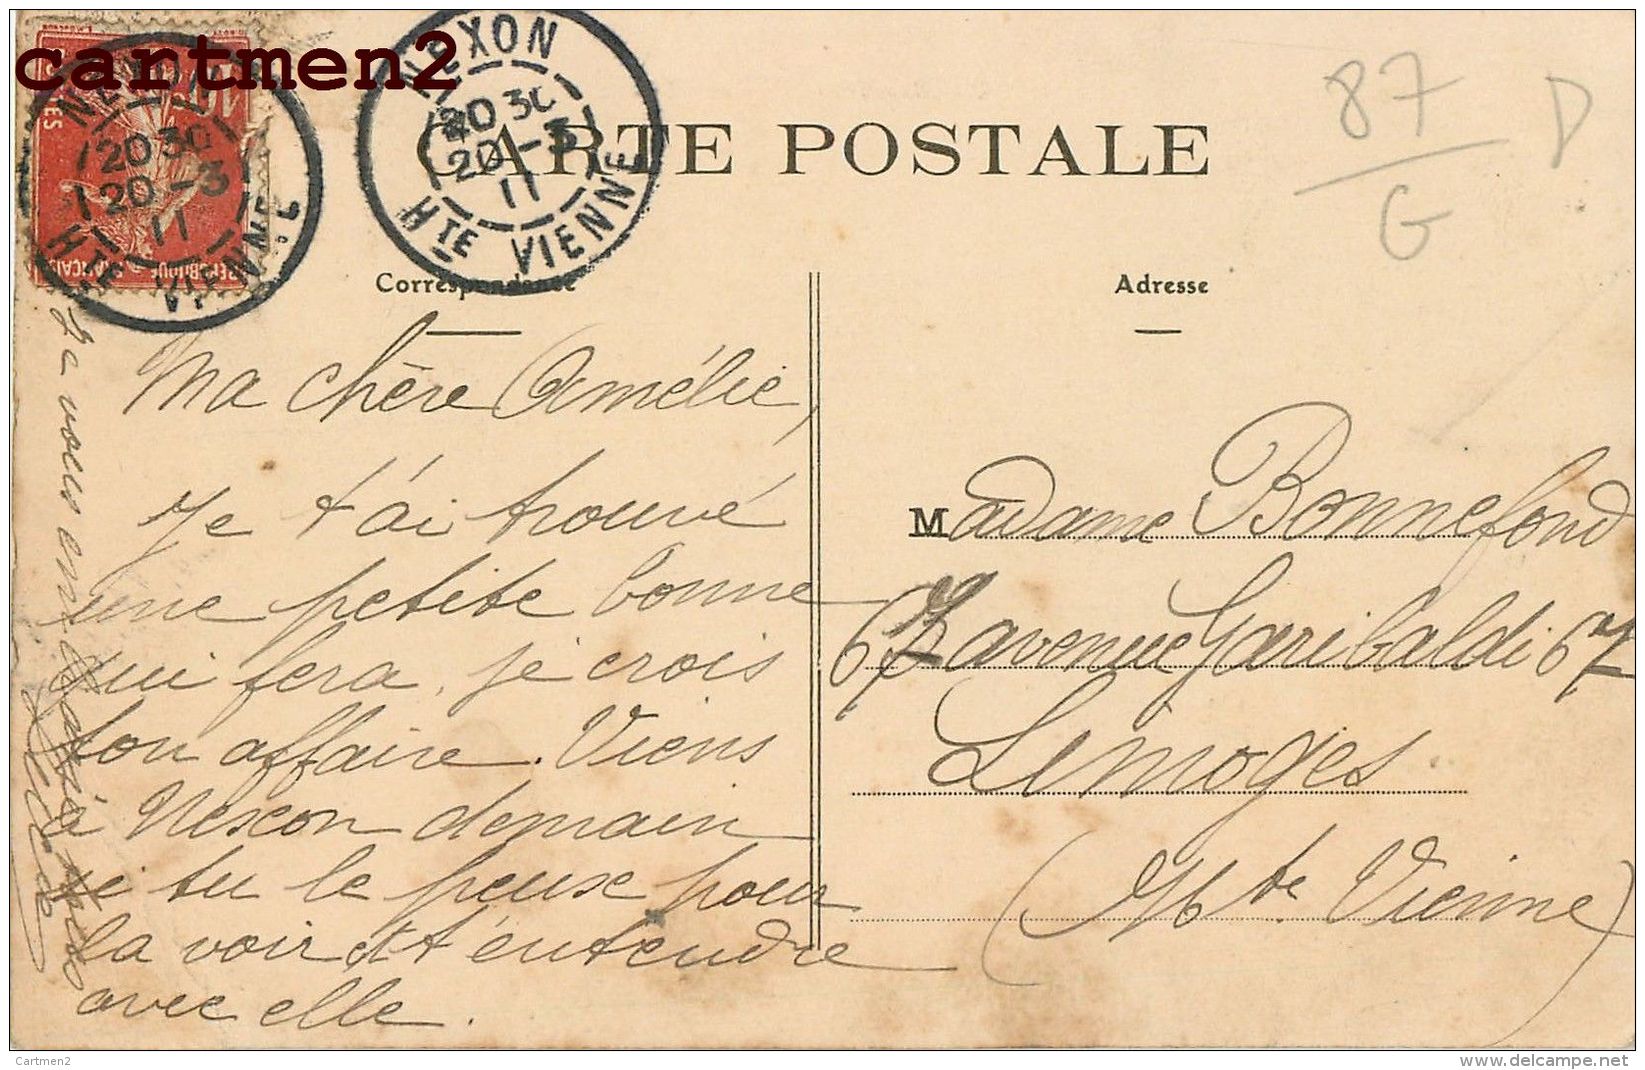 cartmen2
NEXON
20 30
20 -3
11
Hte VIENNE
NEXON
20 30
20 -3
11
Hte VIENNE
10c
POSTES
REPUBLIQUE FRANCAISE
CARTE POSTALE
87
G
D
Correspondance
Adresse
Ma chère Amélie,
Je t'ai trouvé
une petite bonne
qui fera, je crois
ton affaire. Viens
à Nexon demain
si tu le peux pour
la voir et t'entendre
avec elle.
Je vous embrasse
Madame Bonnefond
67 avenue Garibaldi 67
Limoges
(Hte Vienne)
Cartmen2
www.delcampe.net